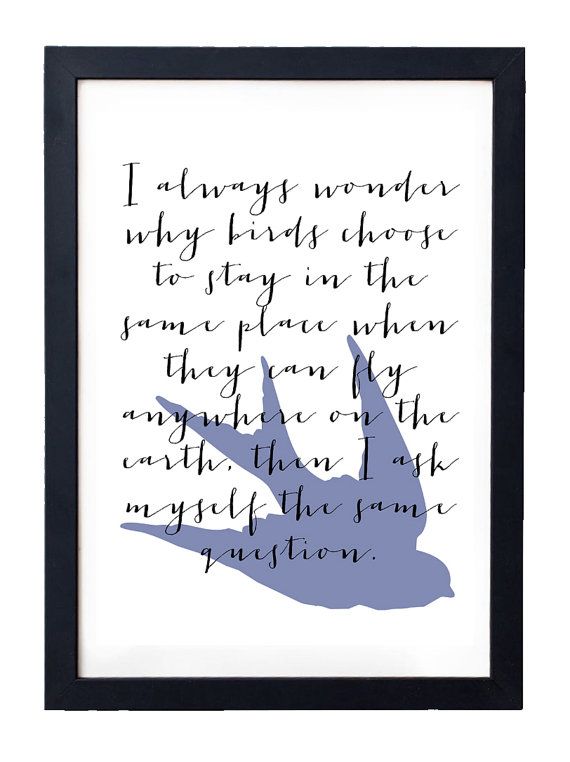 I always wonder
why birds choose
to stay in the
same place when
they can fly
anywhere on the
earth, then I ask
myself the same
question.